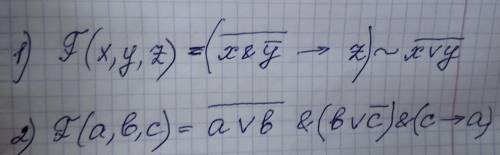 1) F(x, y, z) = (\overline{x & \overline{y}} → z) ~ \overline{x ∨ y}
2) F(a, b, c) = \overline{a ∨ b} & (b ∨ \overline{c}) & (c → a)